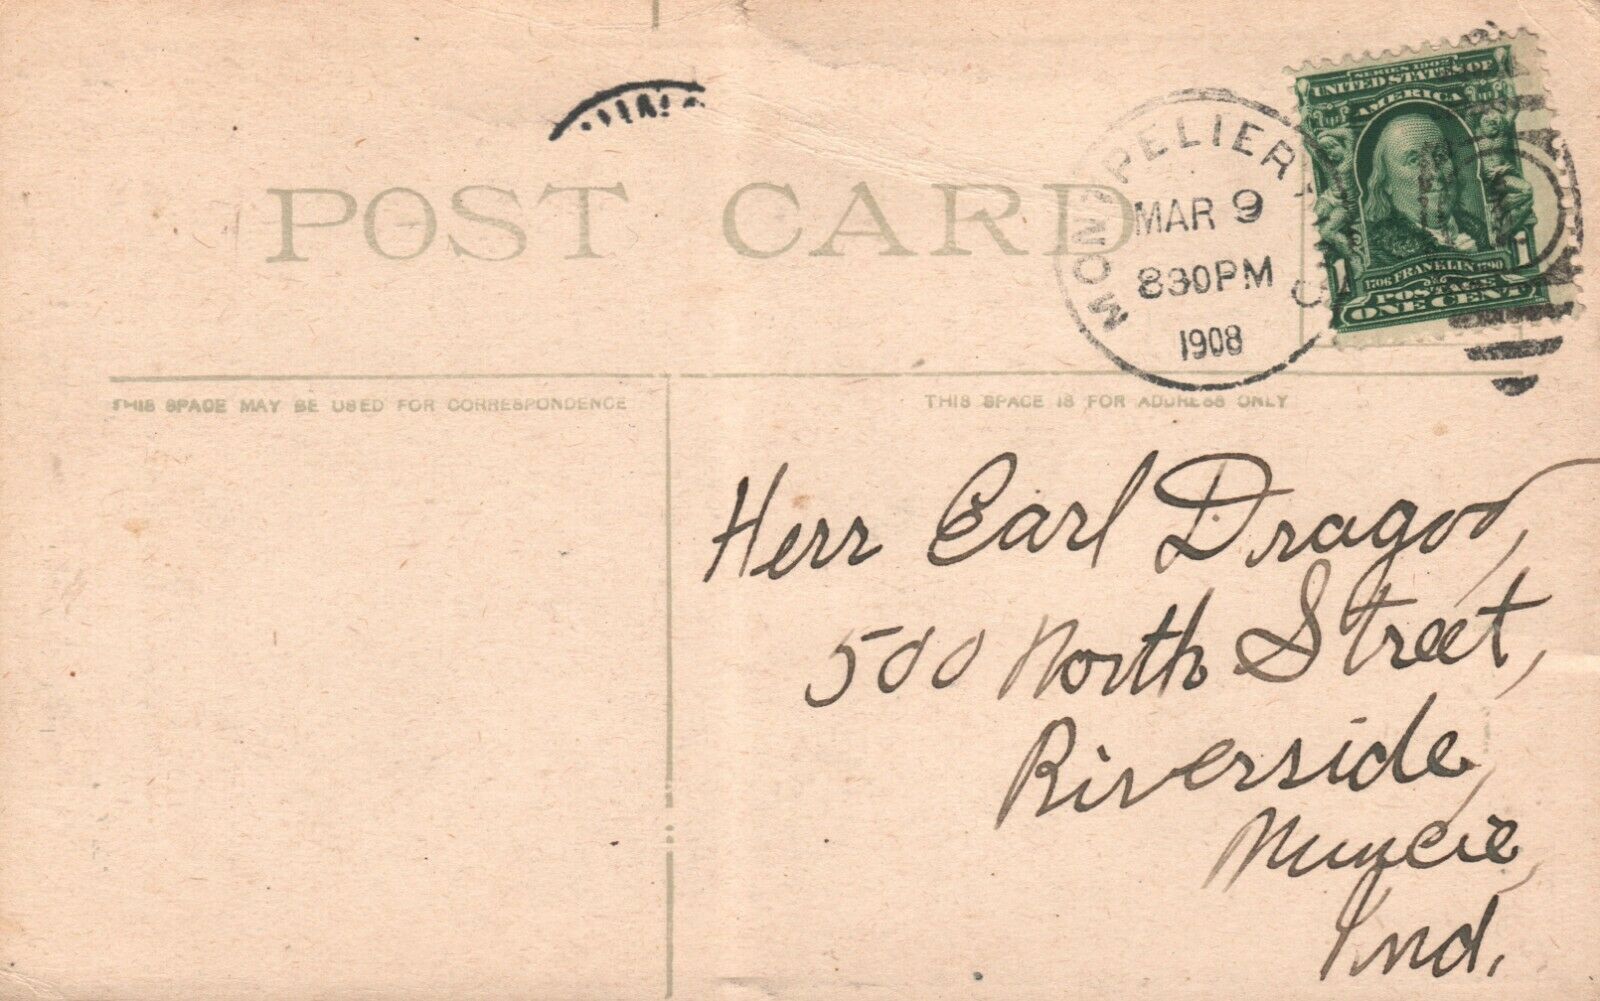 POST CARD
MONTPELIER
MAR 9
830PM
1908
SERIES 1902
UNITED STATES OF
AMERICA
1706 FRANKLIN 1790
1 1
POSTAGE
ONE CENT
THIS SPACE MAY BE USED FOR CORRESPONDENCE
THIS SPACE IS FOR ADDRESS ONLY
Herr Earl Dragoo,
500 North Street,
Riverside,
Muncie,
Ind.